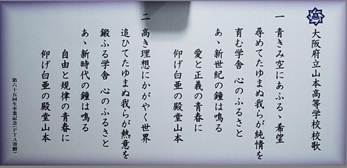 大阪府立山本高等学校校歌
一 青きみ空にあふるゝ希望
尋めてたゆまぬ我らが純情を
育む学舎 心のふるさと
あゝ新世紀の鐘は鳴る
愛と正義の青春に
仰げ白亜の殿堂山本
二 高き理想にかがやく世界
追ひてたゆまぬ我らが熱意を
鍛ふる学舎 心のふるさと
あゝ新時代の鐘は鳴る
自由と規律の青春に
仰げ白亜の殿堂山本